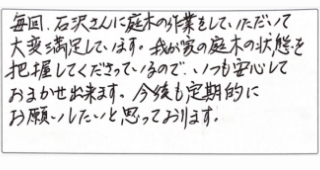 毎回、石沢さんに庭木の作業をしていただいて
大変満足しています。我が家の庭木の状態を
把握してくださっているので、いつも安心して
おまかせ出来ます。今後も定期的に
お願いしたいと思っております。